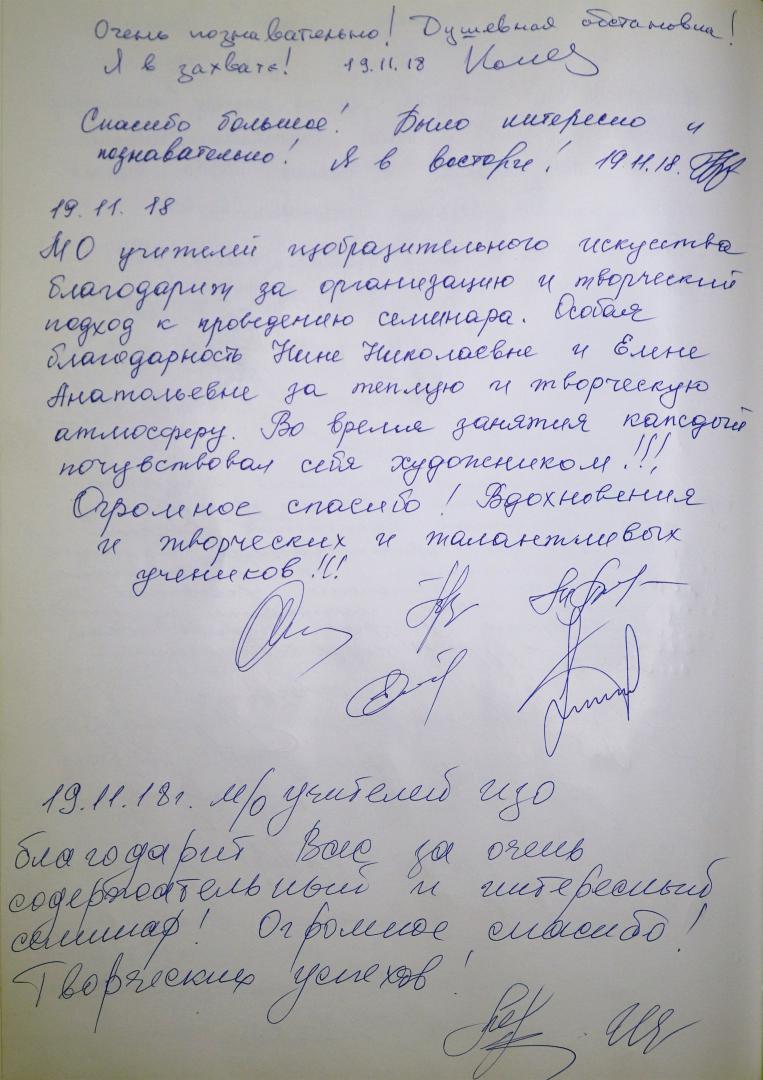 Очень познавательно! Душевная обстановка!
Я в захвате! 19.11.18
Спасибо большое! Было интересно и
познавательно! Я в восторге! 19.11.18.
19.11.18
МО учителей изобразительного искусства
благодарит за организацию и творческий
подход к проведению семинара. Особая
благодарность Нине Николаевне и Елене
Анатольевне за теплую и творческую
атмосферу. Во время занятия каждый
почувствовал себя художником!!!
Огромное спасибо! Вдохновения
и творческих и талантливых
учеников!!!
19.11.18г. м/о учителей изо
благодарит Вас за очень
содержательный и интересный
семинар! Огромное спасибо!
Творческих успехов!